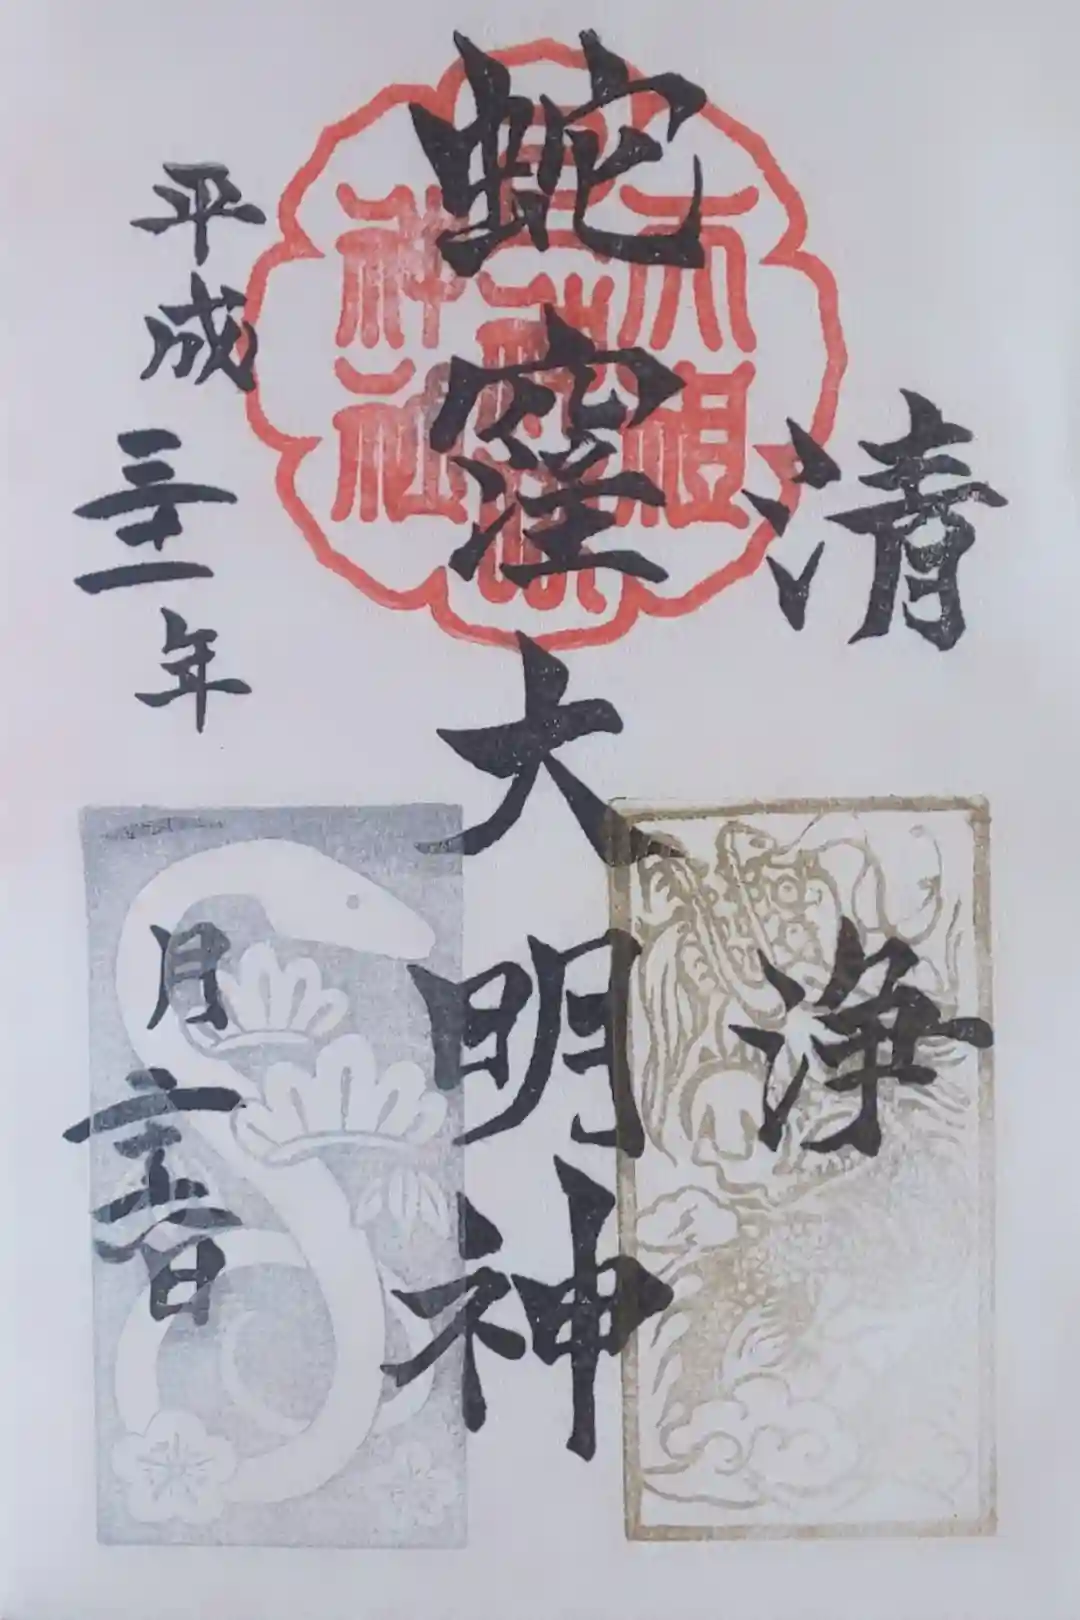 清浄
蛇窪大明神
平成三十一年 月 日
天祖
神社